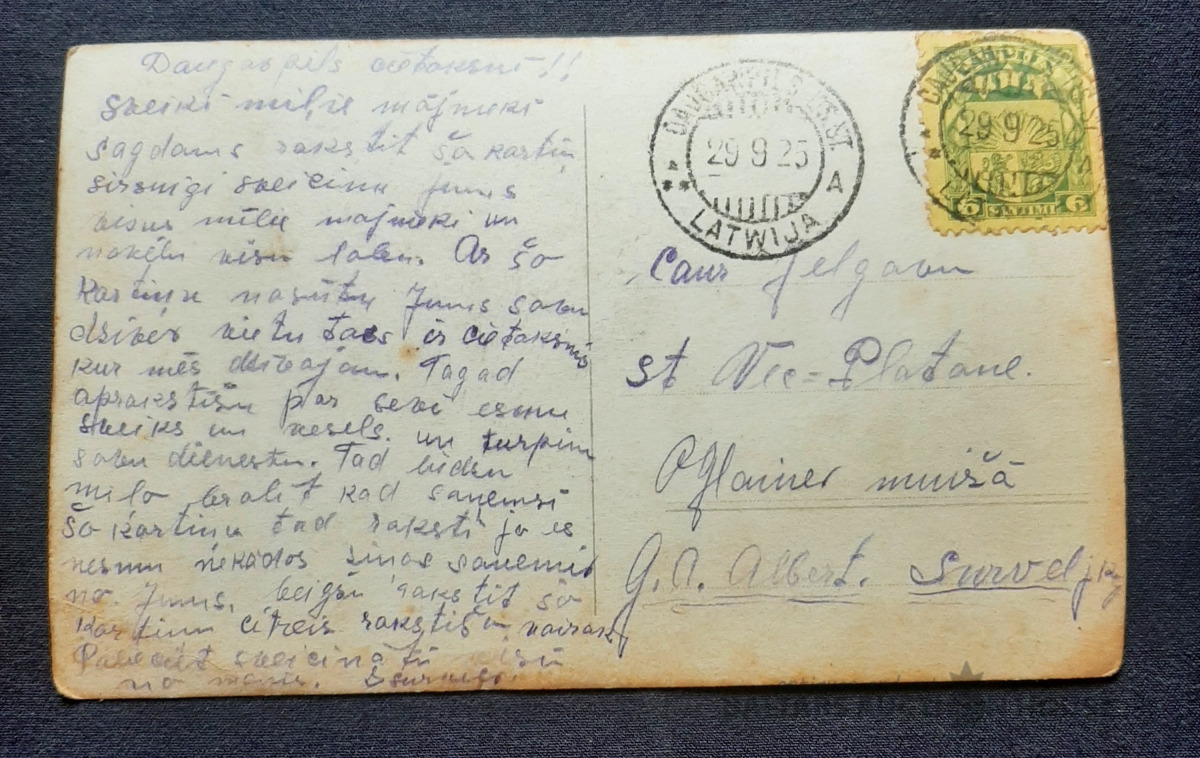 Daugavpils cietoksnī!!
Sveiki miļie mājnieki
sagdams rakstit šo kartiņ
sirsnīgi sveicinu jums
visus mīlie majnieki un
novēļu visu labu. Ar šo
Kartiņu nosūtu Jums savu
dzives vietu tas ir cietoksnis
kur mēs dzivojam. Tagad
aprakstišu par sevi esmu
sveiks un vesels. un turpinu
savu dienestu. Tad lūdzu
milo brālit kad saņemsi
šo kartiņu tad raksti jo es
nesmu nekādas ziņas saņemis
no Jums, beigšu rakstit šo
kartiņu citreis rakstišu vairak
sveicinātu visu
no manis.
DAUGAVPILS
29 9 25
A
LATWIJA
29 9 25
6 SANTIMI 6
Caur Jelgavu
st Vec=Platone.
muižā
G. A. Albert.